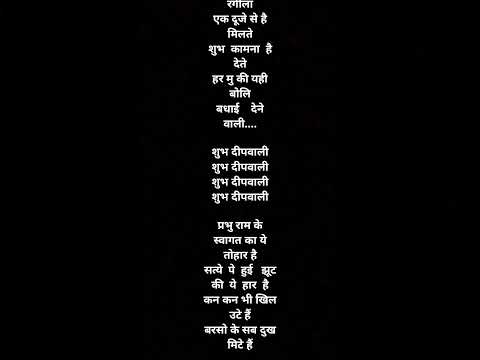 रंगीला
एक दूजे से है
मिलते
शुभ कामना है
देते
हर मु की यही
बोलि
बधाई देने
वाली....
शुभ दीपवाली
शुभ दीपवाली
शुभ दीपवाली
शुभ दीपवाली
प्रभु राम के
स्वागत का ये
तोहार है
सत्ये पे हुई झूट
की ये हार है
कन कन भी खिल
उटे हैं
बरसो के सब दुख
मिटे हैं